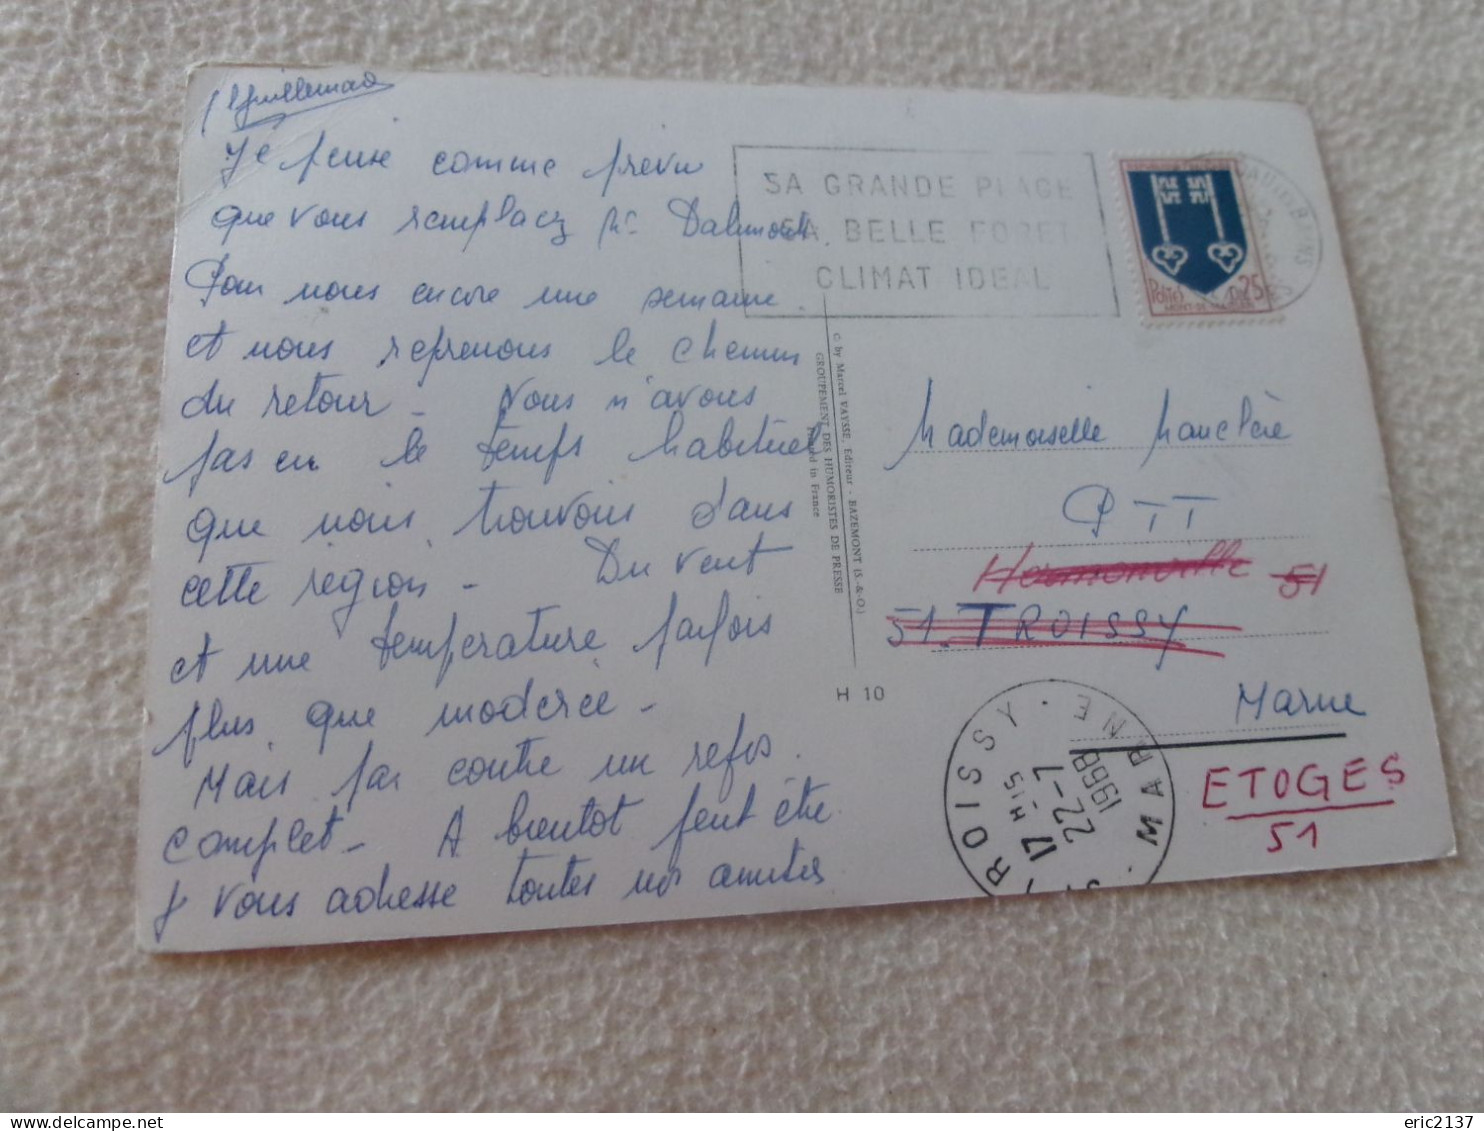 Guillemad
Je pense comme prévu
que vous remplacez Mr Dalmont.
Pour nous encore une semaine.
et nous reprenons le chemin
du retour - Nous n'avons
pas eu le temps habituel
que nous trouvons dans
cette région - Du vent
et une température parfois
plus que modérée -
Mais par contre un repos
complet - A bientôt peut être
Je vous adresse toutes nos amitiés
SA GRANDE PLAGE
SA BELLE FORET
CLIMAT IDEAL
0,25
© by Marcel VAYSSE, Editeur - BAZEMONT (S.-&-O.)
GROUPEMENT DES HUMORISTES DE PRESSE
Printed in France
H 10
Mademoiselle Mauclère
PTT
Hermonville 51
51. TROISSY
Marne
ETOGES
51
TROISSY . MARNE
17 H 15
22-7
1968
eric2137